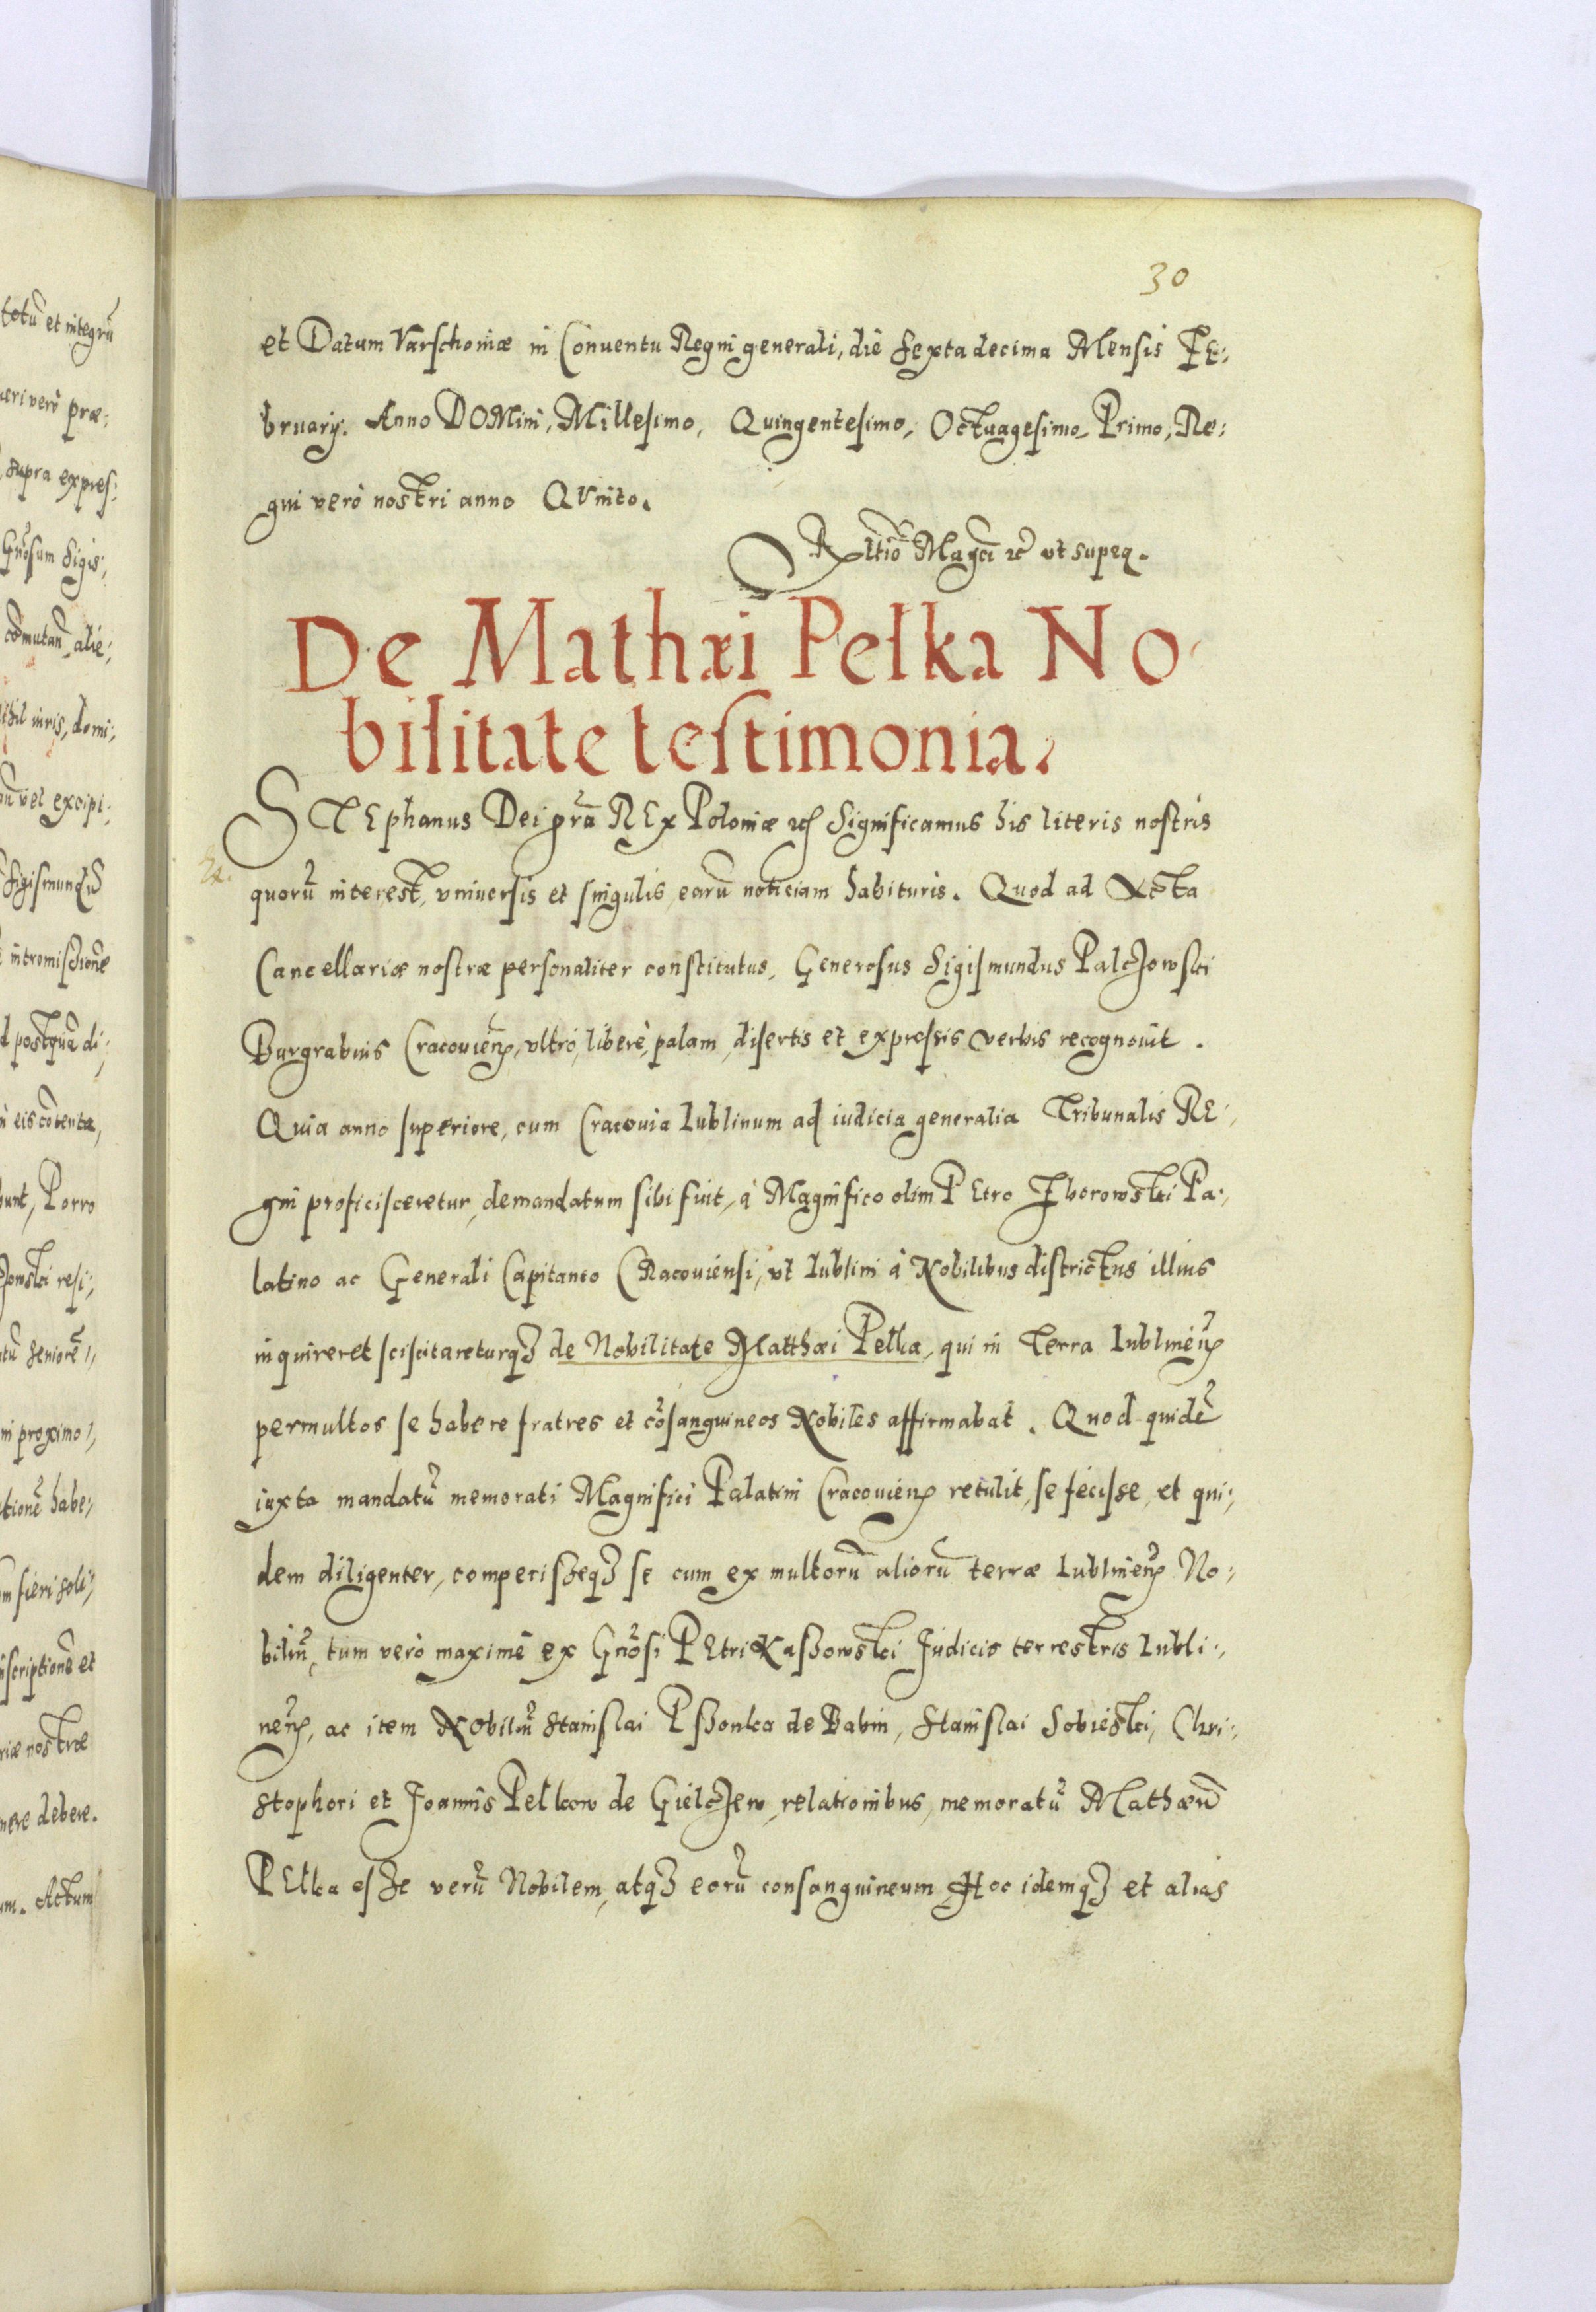 totū et integrū
æri verò præ:
supra expres:
Gn̄osum Sigis:
cōmutan̄ alie:
iuris, domi:
vel excipi:
Sigismundū
intromissionē
postquā di:
eis cōtenta,
bunt, Porro
resi:
Seniorē
in proximo
habe:
fieri soli:
inscriptionē et
nostræ
debere.
Actum
30
et Datum Varschoviæ in Conuentu Regni generali, die Sexta decima Mensis FE:
bruarij. Anno DOMini, Millesimo, Quingentesimo, Octuagesimo Primo, Re:
gni verò nostri anno QVinto.
Rltio Magci &c ut supeq.
De Mathæi Pelka No
bilitate testimonia.
STEphanus Dei grā REx Poloniæ &c Significamus his literis nostris
24.
quorū interest, vniuersis et singulis, earū noticiam habituris. Quod ad Acta
Cancellariæ nostræ personaliter constitutus, Generosus Sigismundus Palczowski
Burgrabius Cracouien̄, vltrò, liberè, palam, disertis et expressis verbis recognouit.
Quia anno superiore, cum Cracouia Lublinum ad iudicia generalia Tribunalis RE:
gni proficisceretur, demandatum sibi fuit, à Magnifico olim PEtro Zborowski Pa:
latino ac Generali Capitaneo CRacouiensi, vt Lublini à Nobilibus districtus illius
inquireret sciscitareturq3 de Nobilitate Matthæi Pelka, qui in Terra Lublinen̄
permultos se habere fratres et cōsanguineos Nobiles affirmabat. Quod quidē
iuxta mandatū memorati Magnifici Palatini Cracouien̄ retulit, se fecisse, et qui:
dem diligenter, comperisseq3 se cum ex multorū aliorū terræ Lublinen̄ No:
biliū, tum verò maximè ex Gn̄osi PEtri Kaszowski Judicis terrestris Lubli:
nen̄, ac item Nobiliū Stanislai Pszonka de Babin, Stanislai Sobieski, Chri:
stophori et Joannis Pelkow de Gielczew, relationibus, memoratū Mathæū
PElka esse verū Nobilem, atq3 eorū consanguineum Hoc idemq3 et alias